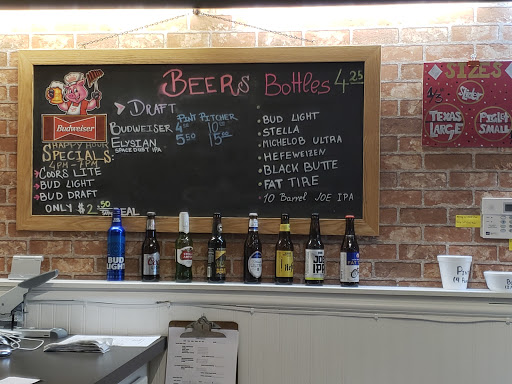 BEERS Bottles 4.25
DRAFT
PINT PITCHER
BUDWEISER
ELYSIAN 5.50
SPACE DUST IPA
Budweiser
HAPPY HOUR
SPECIALS:
4PM - 7PM
COORS LITE
BUD LIGHT
BUD DRAFT
ONLY $2.50
BUD LIGHT
STELLA
MICHELOB ULTRA
HEFEWEIZEN
BLACK BUTTE
FAT TIRE
10 BARREL JOE IPA
SIZES
TEXAS
LARGE
SMALL
BUD
LIGHT
JOE
IPA